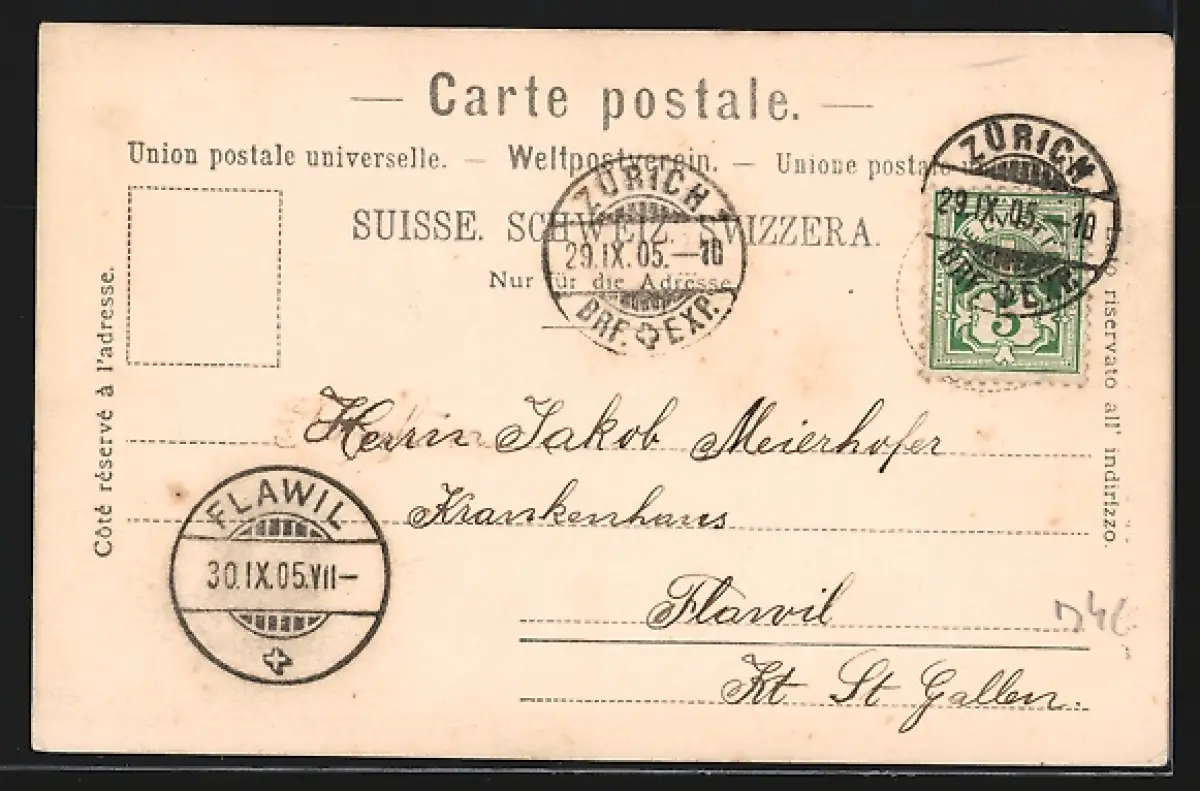 — Carte postale. —
Union postale universelle. — Weltpostverein. — Unione postale
SUISSE. SCHWEIZ. SVIZZERA.
Nur für die Adresse
ZÜRICH
29.IX.05.—10
BRF. EXP.
ZÜRICH
29.IX.05.—10
BRF. EXP.
5
Côté réservé à l'adresse.
Lato riservato all' indirizzo.
Herrn Jakob Meierhofer
Krankenhaus
Flawil
Kt. St. Gallen.
FLAWIL
30.IX.05.VII—